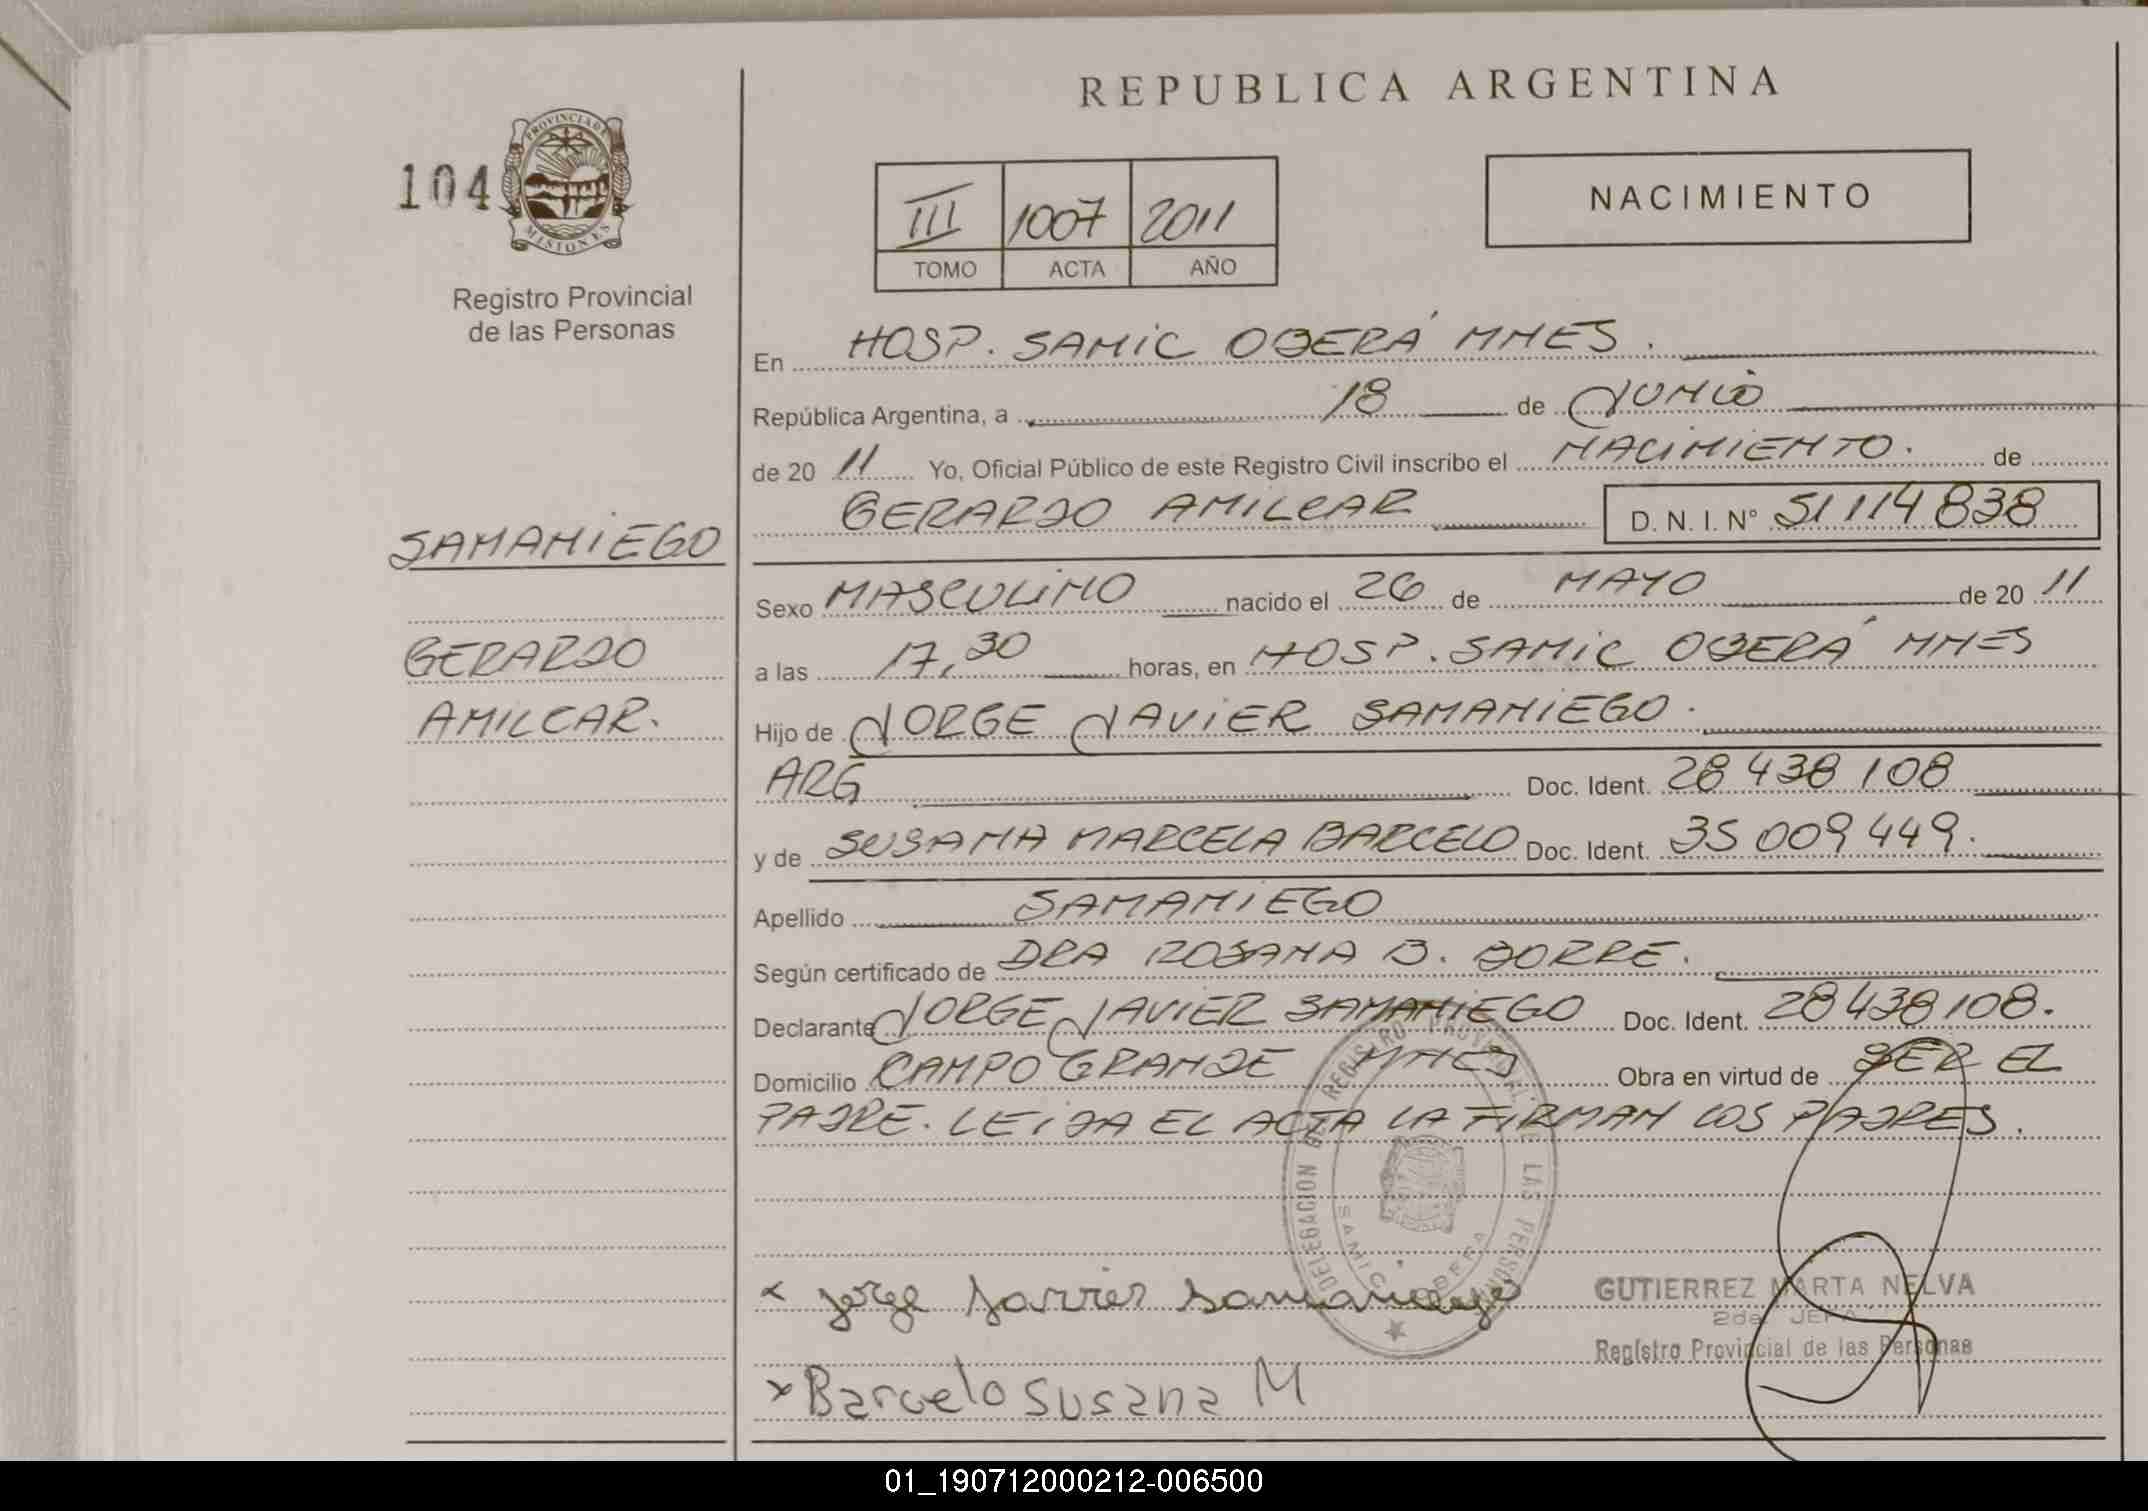 REPUBLICA ARGENTINA
104
PROVINCIA DE
MISIONES
Registro Provincial
de las Personas
III 1007 2011
TOMO ACTA AÑO
NACIMIENTO
En HOSP. SAMIC OBERÁ MNES.
República Argentina, a 18 de JUNIO
de 20 11 Yo, Oficial Público de este Registro Civil inscribo el NACIMIENTO. de
GERARDO AMILCAR D. N. I. N° 51 114 838
SAMANIEGO
GERARDO
AMILCAR.
Sexo MASCULINO nacido el 26 de MAYO de 20 11
a las 17,30 horas, en HOSP. SAMIC OBERÁ MNES
Hijo de JORGE JAVIER SAMANIEGO.
ARG Doc. Ident. 28 438 108
y de SUSANA MARCELA BARCELO Doc. Ident. 35 009 449.
Apellido SAMANIEGO
Según certificado de DRA ROSANA B. DORRE.
Declarante JORGE JAVIER SAMANIEGO Doc. Ident. 28 438 108.
Domicilio CAMPO GRANDE MNES Obra en virtud de SER EL
PADRE. LEIDA EL ACTA LA FIRMAN LOS PADRES.
DELEGACION DEL REGISTRO PROVINCIAL DE LAS PERSONAS
SAMIC OBERA
x Jorge Javier Samaniego
GUTIERREZ MARTA NELVA
2da. JEFA
Registro Provincial de las Personas
x Barcelo Susana M
01_190712000212-006500